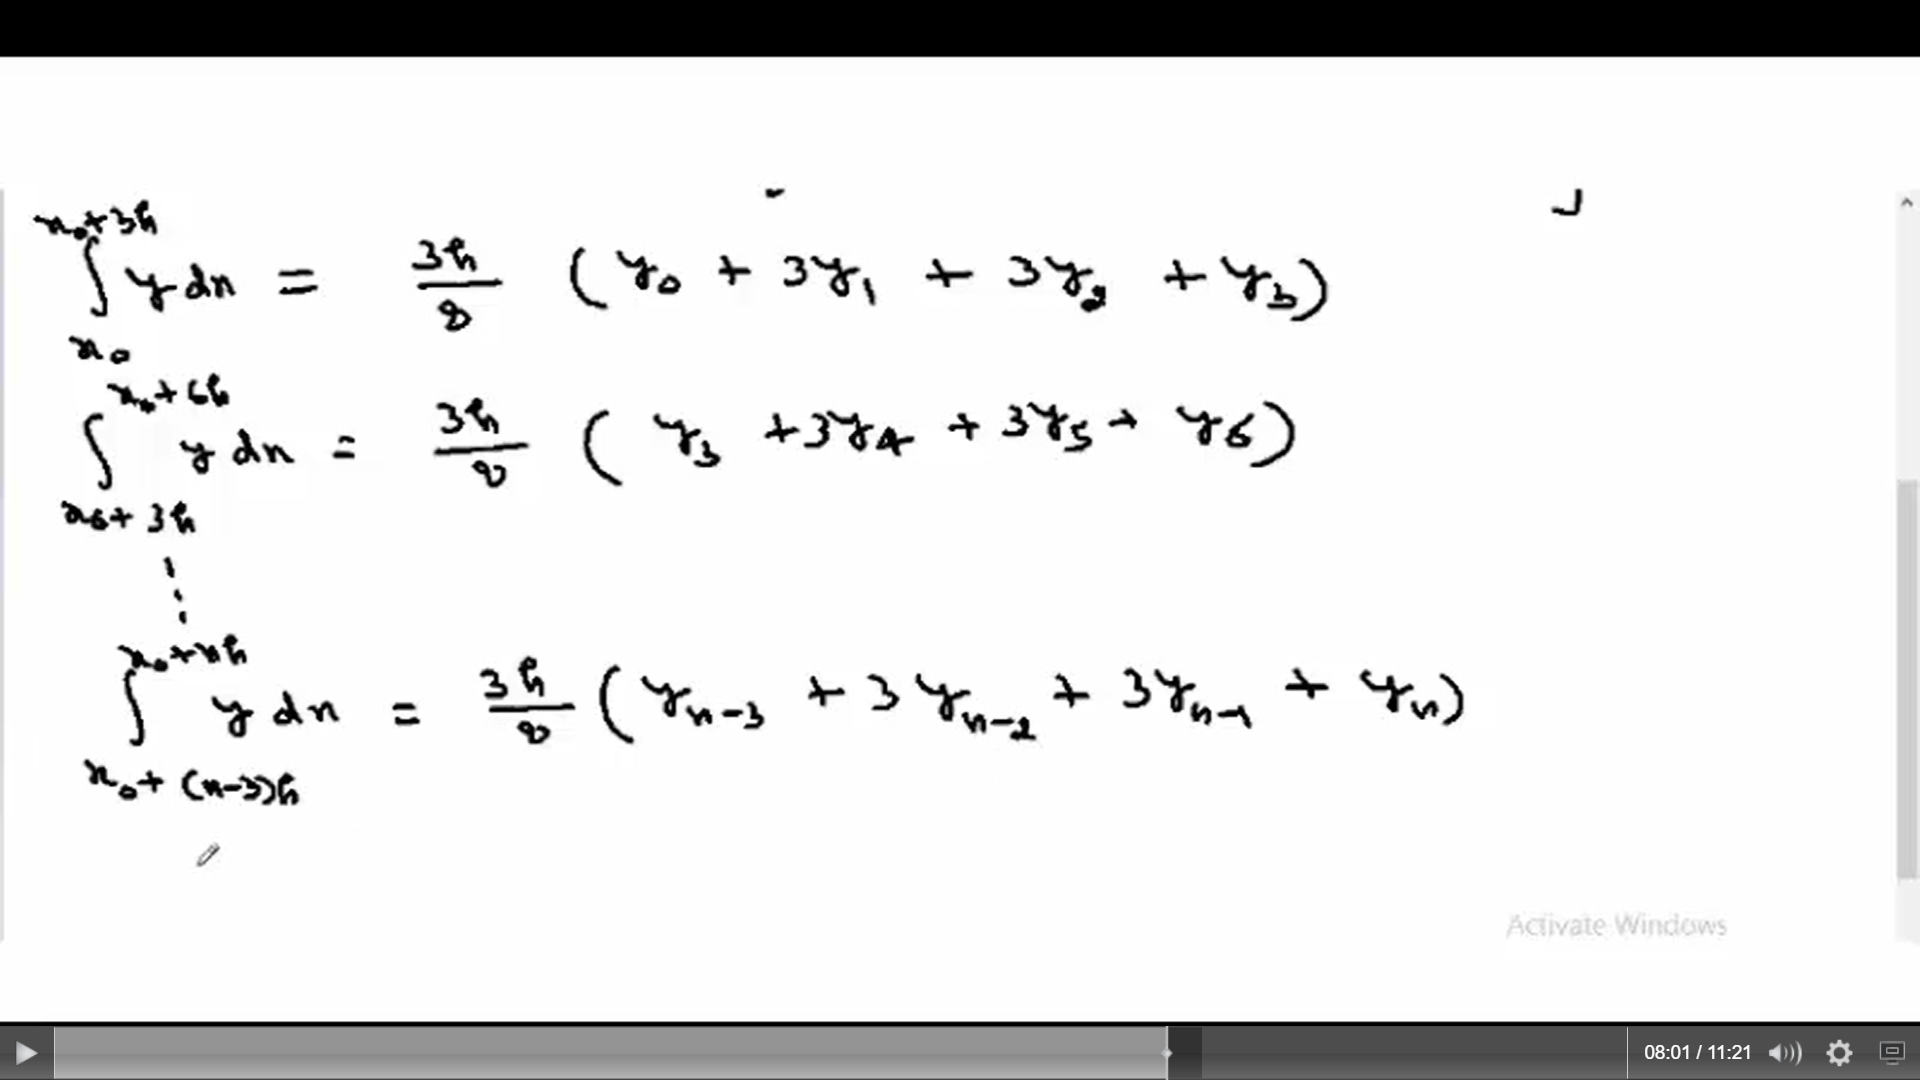 x₀+3h
∫ y dx = 3h/8 (y₀ + 3y₁ + 3y₂ + y₃)
x₀
x₀+6h
∫ y dx = 3h/8 (y₃ + 3y₄ + 3y₅ + y₆)
x₀+3h
⋮
x₀+nh
∫ y dx = 3h/8 (yₙ₋₃ + 3yₙ₋₂ + 3yₙ₋₁ + yₙ)
x₀+(n-3)h
Activate Windows
08:01 / 11:21